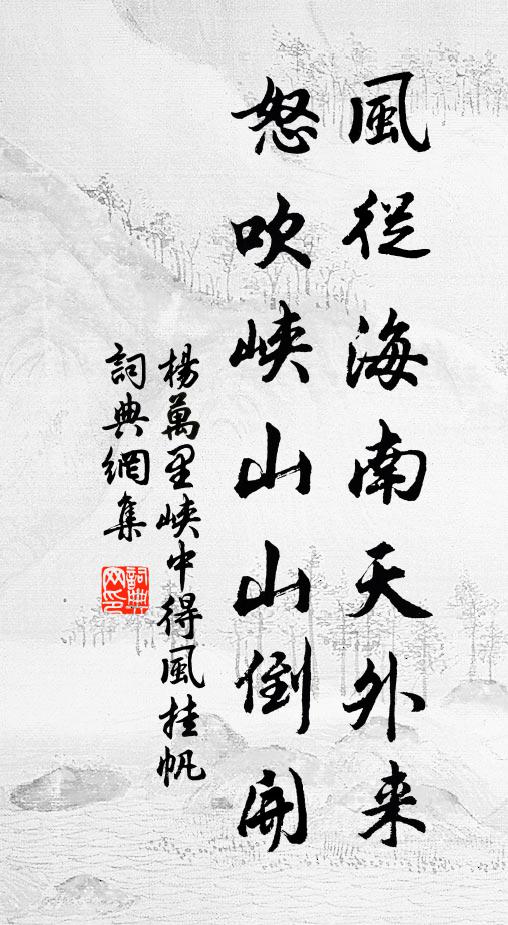 風從海南天外来
怒吹峽山山倒開
楊萬里峽中得風挂帆
詞典網集
詞典
网印